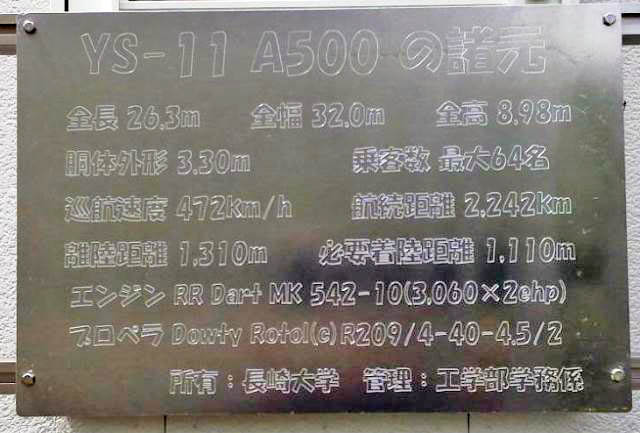 YS-11 A500 の諸元
全長 26.3m 全幅 32.0m 全高 8.98m
胴体外形 3.30m 乗客数 最大64名
巡航速度 472km/h 航続距離 2,242km
離陸距離 1,310m 必要着陸距離 1,110m
エンジン RR Dart MK 542-10(3,060×2ehp)
プロペラ Dowty Rotol(c)R209/4-40-4.5/2
所有:長崎大学 管理:工学部学務係